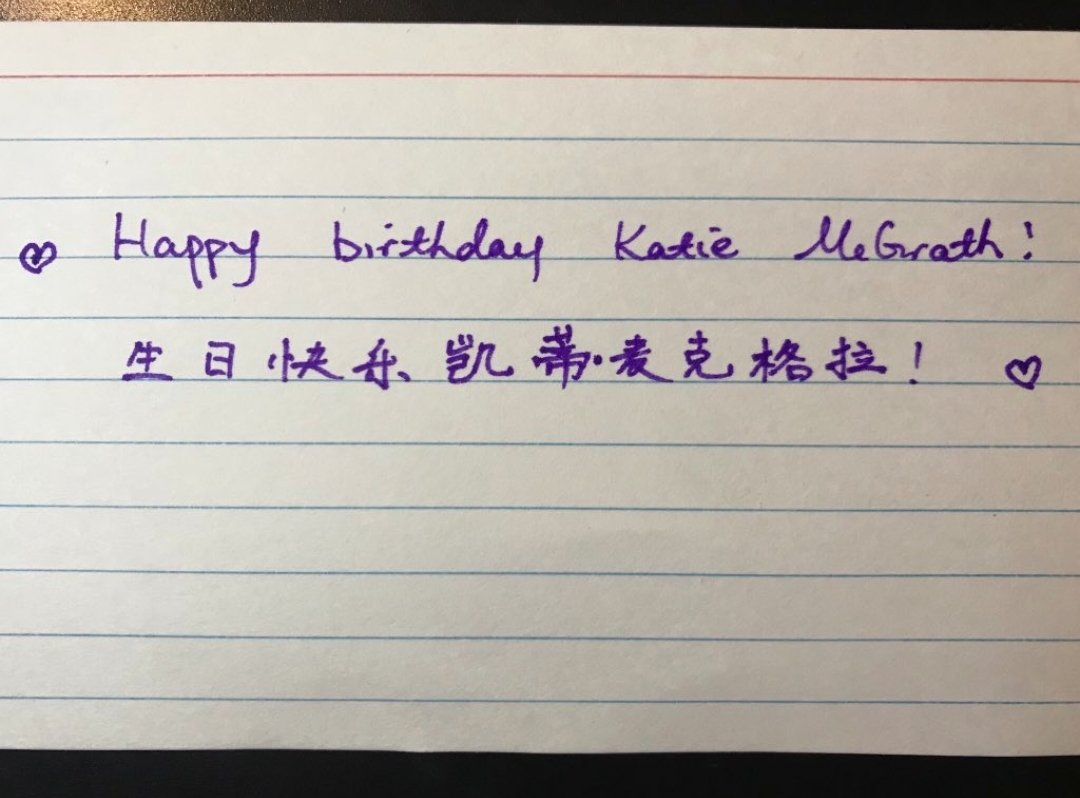 ♡ Happy birthday Katie McGrath!
生日快乐凯蒂·麦克格拉! ♡